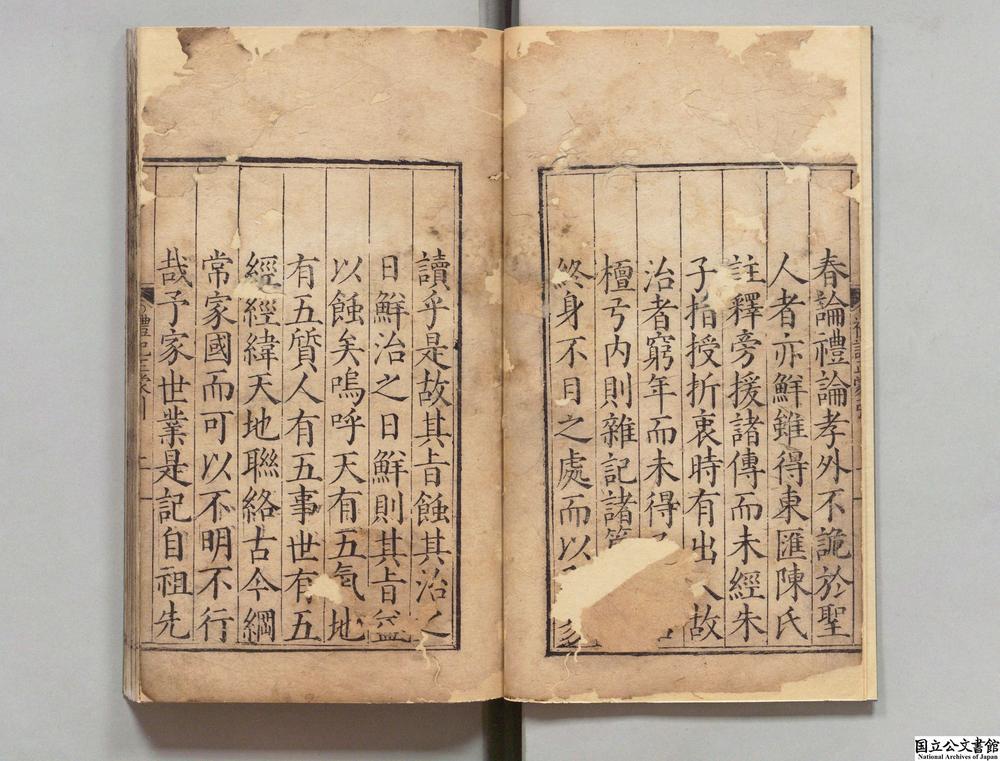 春論禮論孝外不詭於聖
人者亦鮮雖得東匯陳氏
註釋旁援諸傳而未經朱
子指授折衷時有出入故
治者窮年而未得
檀弓內則雜記諸
終身不目之處而以
讀乎是故其旨蝕其治之
日鮮治之日鮮則其旨益
以蝕矣嗚呼天有五氣地
有五質人有五事世有五
經經緯天地聯絡古今綱
常家國而可以不明不行
哉予家世業是記自祖先
国立公文書館
National Archives of Japan